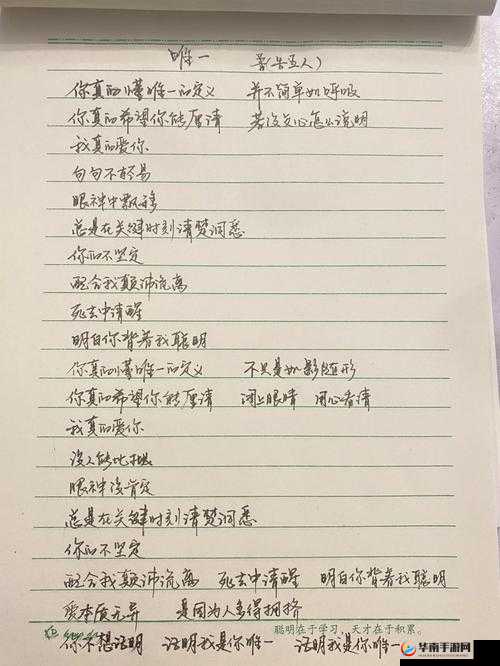 唯一 (告五人)
你真的懂唯一的定义 并不简单如呼吸
你真的希望你能厘清 若没交心怎么说明
我真的爱你
句句不轻易
眼神中飘移
总是在关键时刻清楚洞悉
你的不坚定
配合我颠沛流离
死去中清醒
明白你背着我聪明
你真的懂唯一的定义 不只是如影随形
你真的希望你能厘清 闭上眼睛 用心看清
我真的爱你
没人能比拟
眼神没肯定
总是在关键时刻清楚洞悉
你的不坚定
配合我颠沛流离 死去中清醒 明白你背着我聪明
爱本质无异 是因为人多得拥挤
聪明在于学习,天才在于积累。
你不想证明 证明我是你唯一 证明我是你唯一
华南手游网